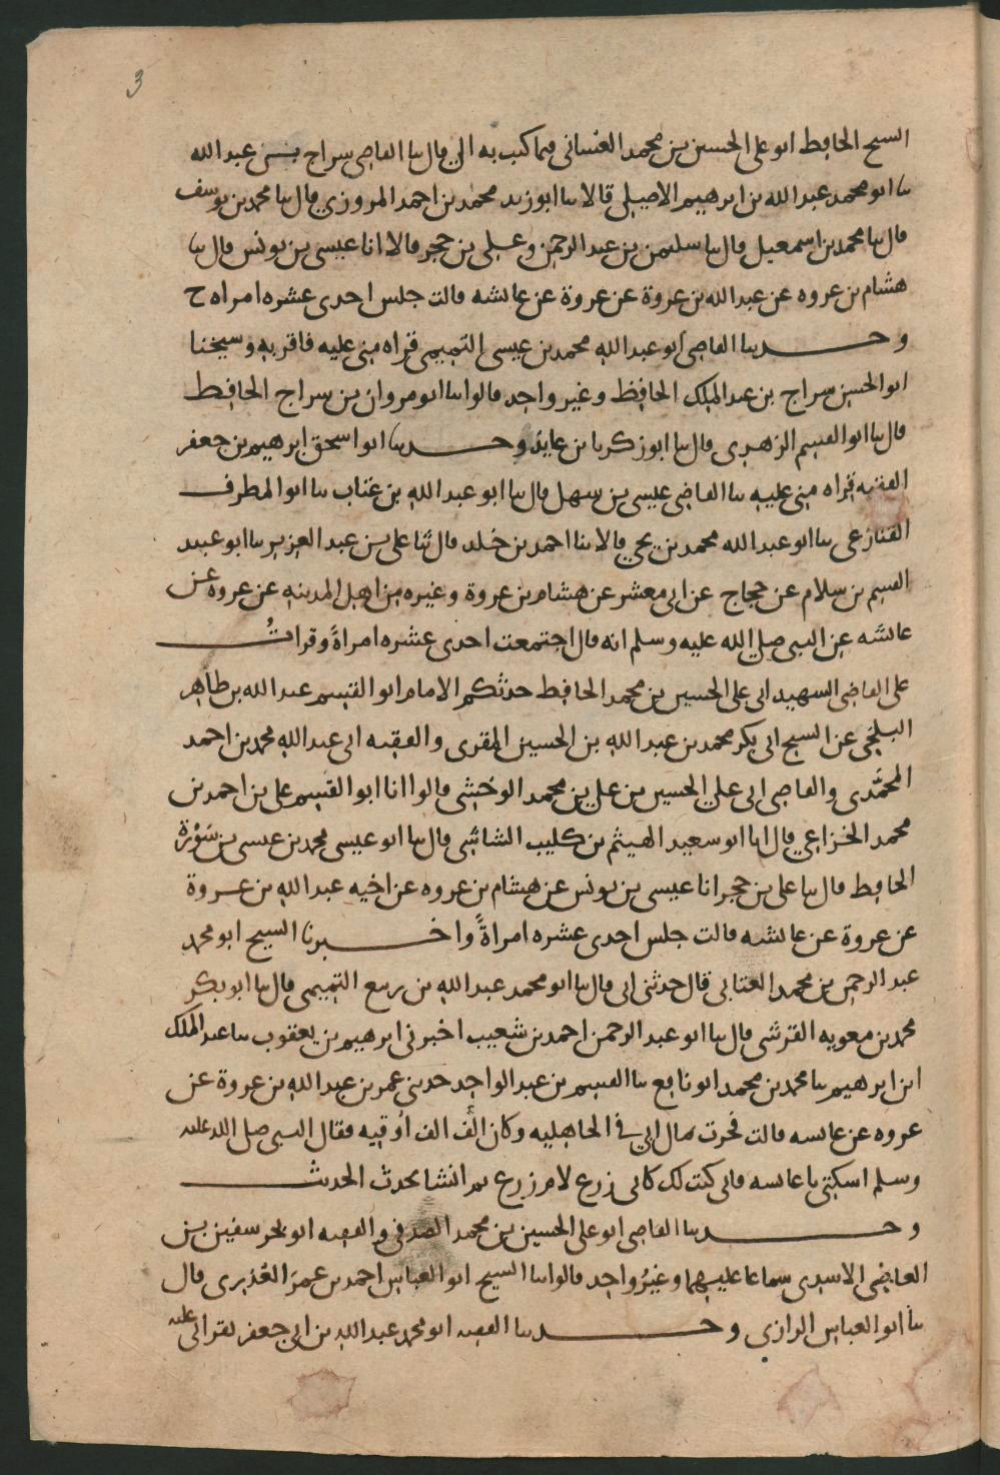 3
الشيخ الحافظ ابو على الحسين بن محمد الغسانى فيما كتب به الى قال نا القاضى سراج بن عبد الله
نا ابو محمد عبد الله بن ابرهيم الاصيلى قالا نا ابو زيد محمد بن احمد المروزي قال نا محمد بن يوسف
قال نا محمد بن اسمعيل قال نا سليمن بن عبد الرحمن وعلى بن حجر قالا انا عيسى بن يونس قال نا
هشام بن عروه عن عبد الله بن عروة عن عروة عن عائشه قالت جلس احدى عشره امراه ح
وحدثنا القاضى ابو عبد الله محمد بن عيسى التميمى قراه منى عليه فاقر به وشيخنا
ابو الحسن سراج بن عبد الملك الحافظ وغير واحد قالوا نا ابو مروان بن سراج الحافظ
قال نا ابو القسم الزهرى قال نا ابو زكريا بن عايذ وحدثنا ابو اسحق ابرهيم بن جعفر
الفقيه قراه منى عليه نا القاضى عيسى بن سهل قال نا ابو عبد الله بن عتاب نا ابو المطرف
القنازعى نا ابو عبد الله محمد بن يحيى قالا نا احمد بن خلد قال ثنا على بن عبد العزيز نا ابو عبيد
القسم بن سلام عن حجاج عن ابى معشر عن هشام بن عروة وغيره من اهل المدينه عن عروه عن
عائشه عن النبى صلى الله عليه وسلم انه قال اجتمعت احدى عشره امراةً وقراتُ
على القاضى الشهيد ابى على الحسين بن محمد الحافظ حدثكم الامام ابو القسم عبد الله بن طاهر
البلخى عن الشيخ ابى بكر محمد بن عبد الله بن الحسين المقرى والفقيه ابى عبد الله محمد بن احمد
المحمّدى والقاضى ابى على الحسين بن على بن محمد الوخشى قالوا انا ابو القسم على بن احمد بن
محمد الخزاعي قال انا ابو سعيد الهيثم بن كليب الشاشى قال نا ابو عيسى محمد بن عيسى بن سَوْرة
الحافظ قال نا على بن حجر انا عيسى بن يونس عن هشام بن عروه عن اخيه عبد الله بن عروة
عن عروة عن عائشه قالت جلس احدى عشره امراةً واخبرنا الشيخ ابو محمد
عبد الرحمن بن محمد العتابى قال حدثنى ابى قال نا ابو محمد عبد الله بن ربيع التميمى قال نا ابو بكر
محمد بن معويه القرشى قال نا ابو عبد الرحمن احمد بن شعيب اخبرنى ابرهيم بن يعقوب نا عبد الملك
ابن ابرهيم نا محمد بن محمد ابو نافع نا القسم بن عبد الواحد حدثنى عمر بن عبد الله بن عروة عن
عروه عن عائشه قالت فخرت بمال ابى فى الجاهليه وكان الْف الف أوقيه فقال النبى صلى الله عليه
وسلم اسكتى يا عائشه فانى كنت لك كابى زرع لام زرع ثم انشا يحدث الحديث
وحدثنا القاضى ابو على الحسين بن محمد الصدفى والفقيه ابو بحر سفين بن
العاصى الاسدى سماعا عليهما وغيرُ واحد قالوا نا الشيخ ابو العباس احمد بن عمر العُذرى قال
نا ابو العباس الرازى وحدثنا الفقيه ابو محمد عبد الله بن ابى جعفر لقراتى عليه